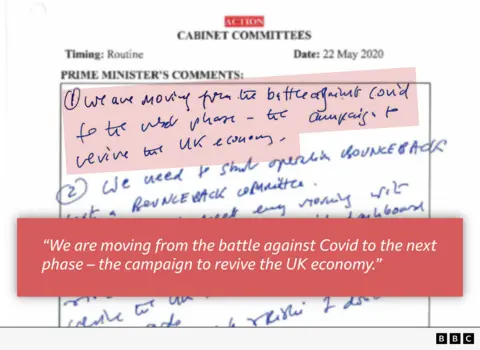 ACTION
CABINET COMMITTEES
Timing: Routine Date: 22 May 2020
PRIME MINISTER'S COMMENTS:
① We are moving from the battle against Covid
to the next phase – the campaign to
revive the UK economy.
② We need to start operation BOUNCEBACK
a BOUNCEBACK committee.
every morning with
dashboard
“We are moving from the battle against Covid to the next
phase – the campaign to revive the UK economy.”
the UK
BBC